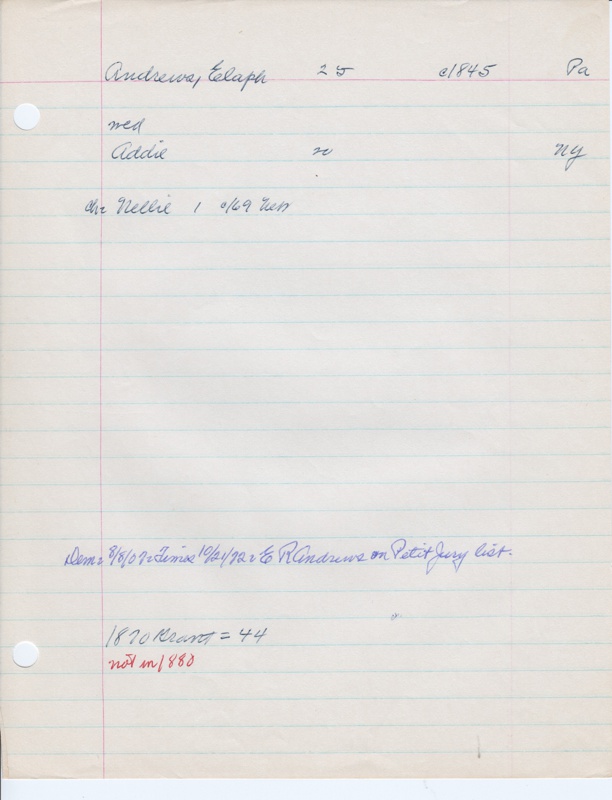 Andrews, Elaph 25 c1845 Pa
med
Addie 20 NY
ch= Nellie 1 c/69
Dem= 8/8/07= Times 10/21/72= E R Andrews on Petit Jury list.
1870 Grant = 44
not in 1880